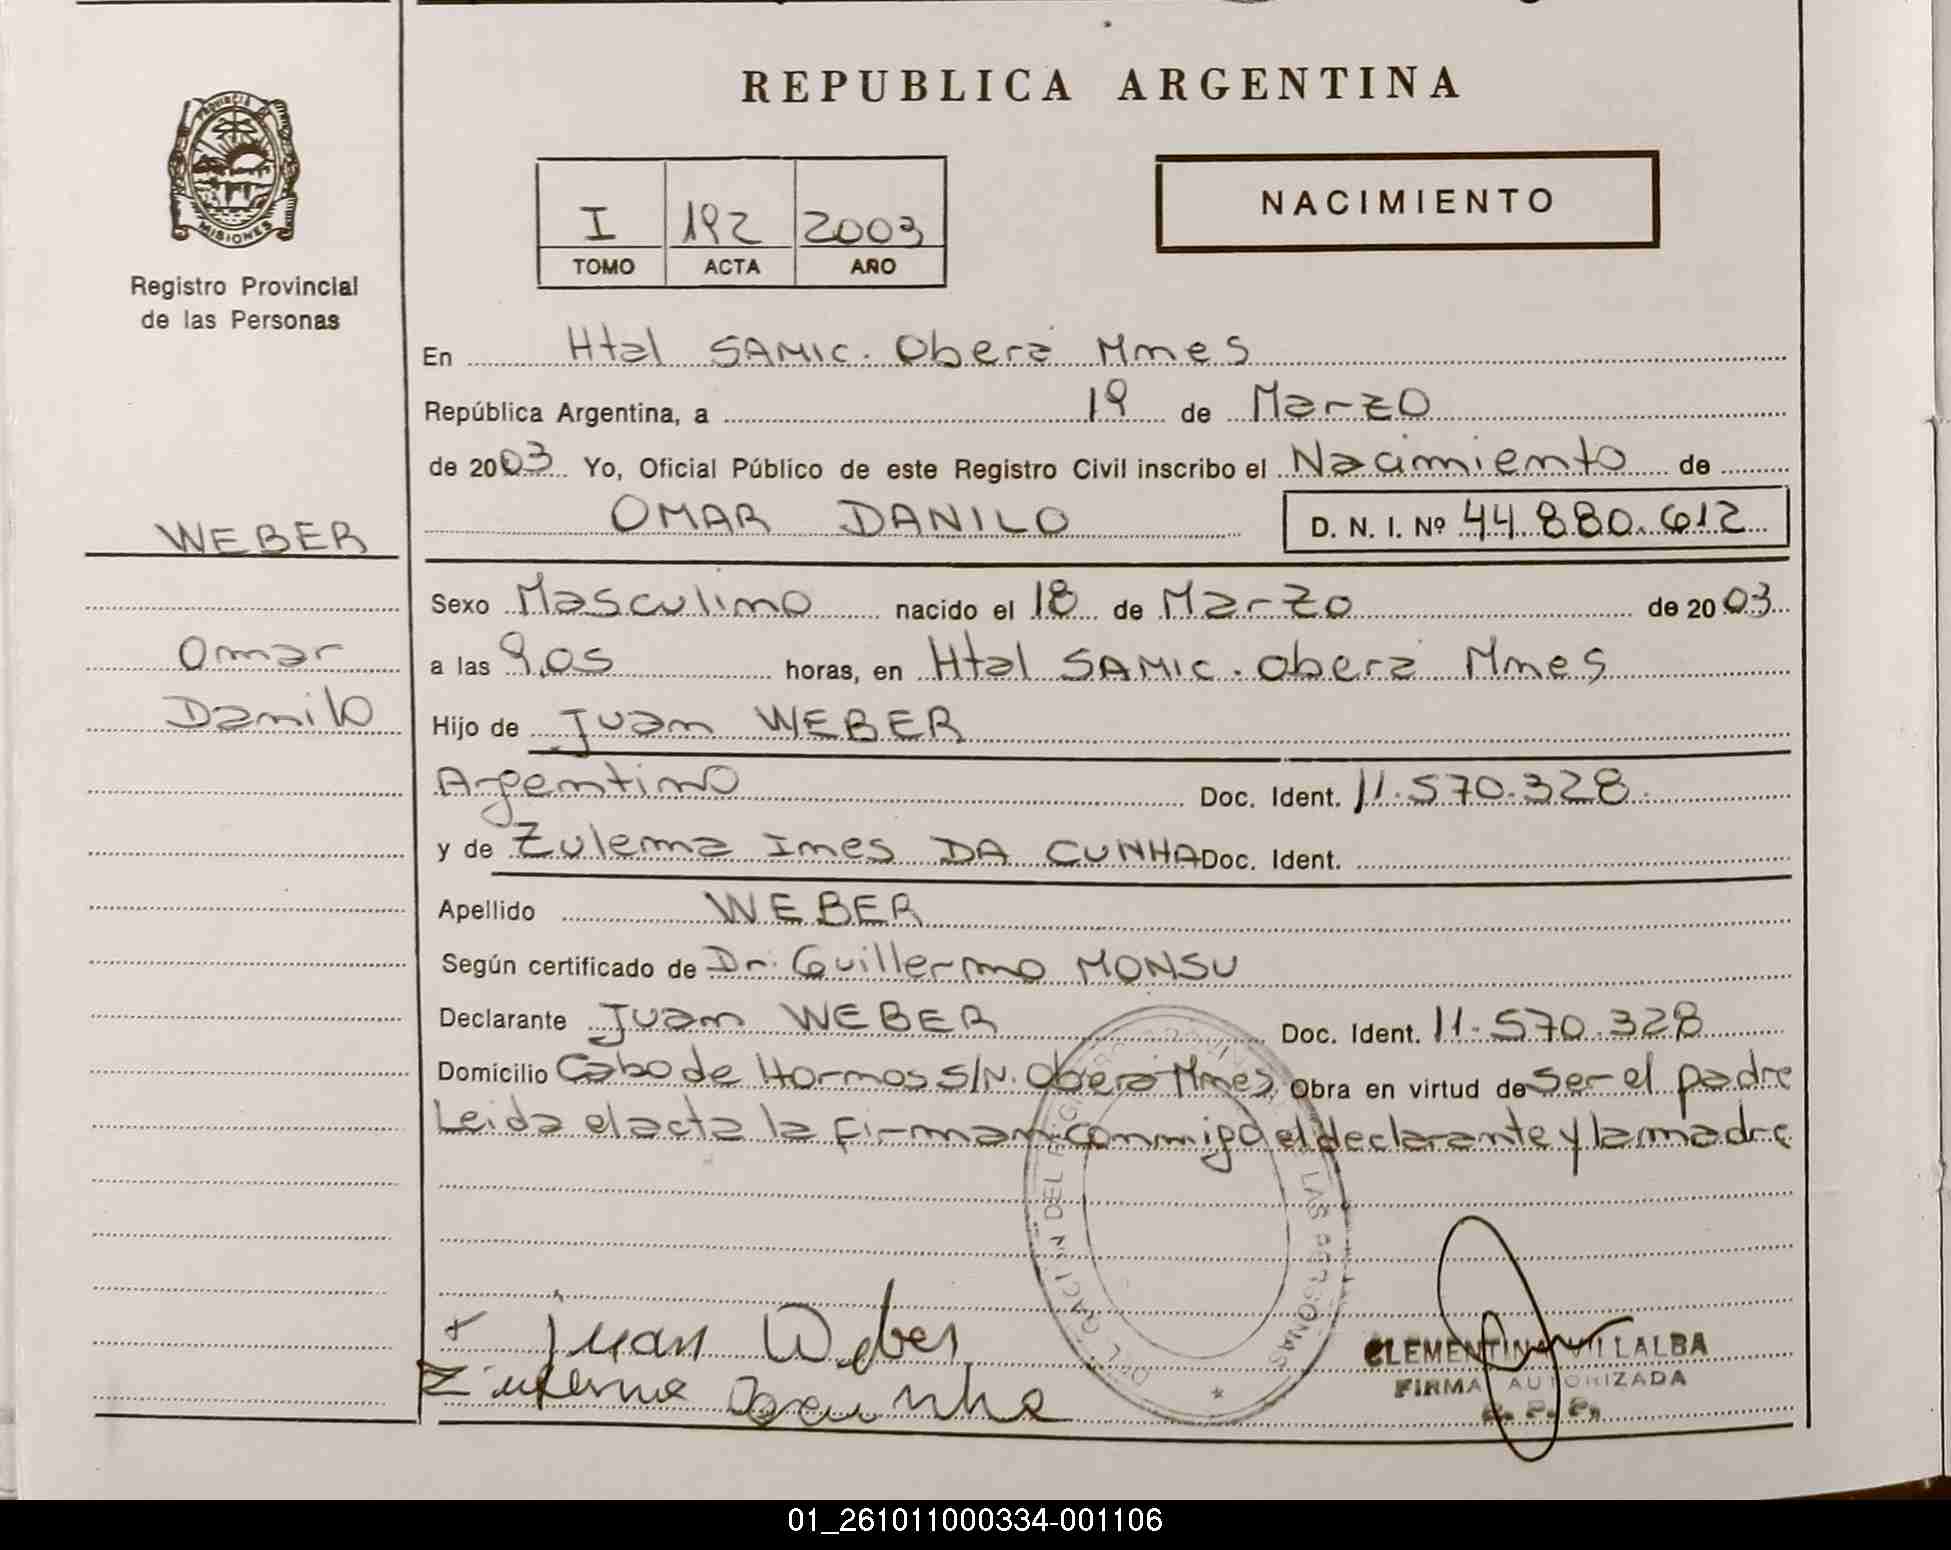 REPUBLICA ARGENTINA
PROVINCIA
MISIONES
Registro Provincial
de las Personas
NACIMIENTO
I 192 2003
TOMO ACTA AÑO
En Htal SAMIC. Oberá Mnes
República Argentina, a 19 de Marzo
de 2003 Yo, Oficial Público de este Registro Civil inscribo el Nacimiento de
OMAR DANILO D. N. I. Nº 44.880.612
WEBER
Omar
Danilo
Sexo Masculino nacido el 18 de Marzo de 2003
a las 9,05 horas, en Htal SAMIC. Oberá Mnes
Hijo de Juan WEBER
Argentino Doc. Ident. 11.570.328
y de Zulema Ines DA CUNHA Doc. Ident.
Apellido WEBER
Según certificado de Dr. Guillermo MONSU
Declarante Juan WEBER Doc. Ident. 11.570.328
Domicilio Cabo de Hornos S/N. Oberá Mnes Obra en virtud de Ser el padre
Leida el acta la firman conmigo el declarante y la madre
DEL REGISTRO PROVINCIAL LAS PERSONAS
+ juan Weber
Zulema Dacunha
CLEMENTINA VILLALBA
FIRMA AUTORIZADA
01_261011000334-001106